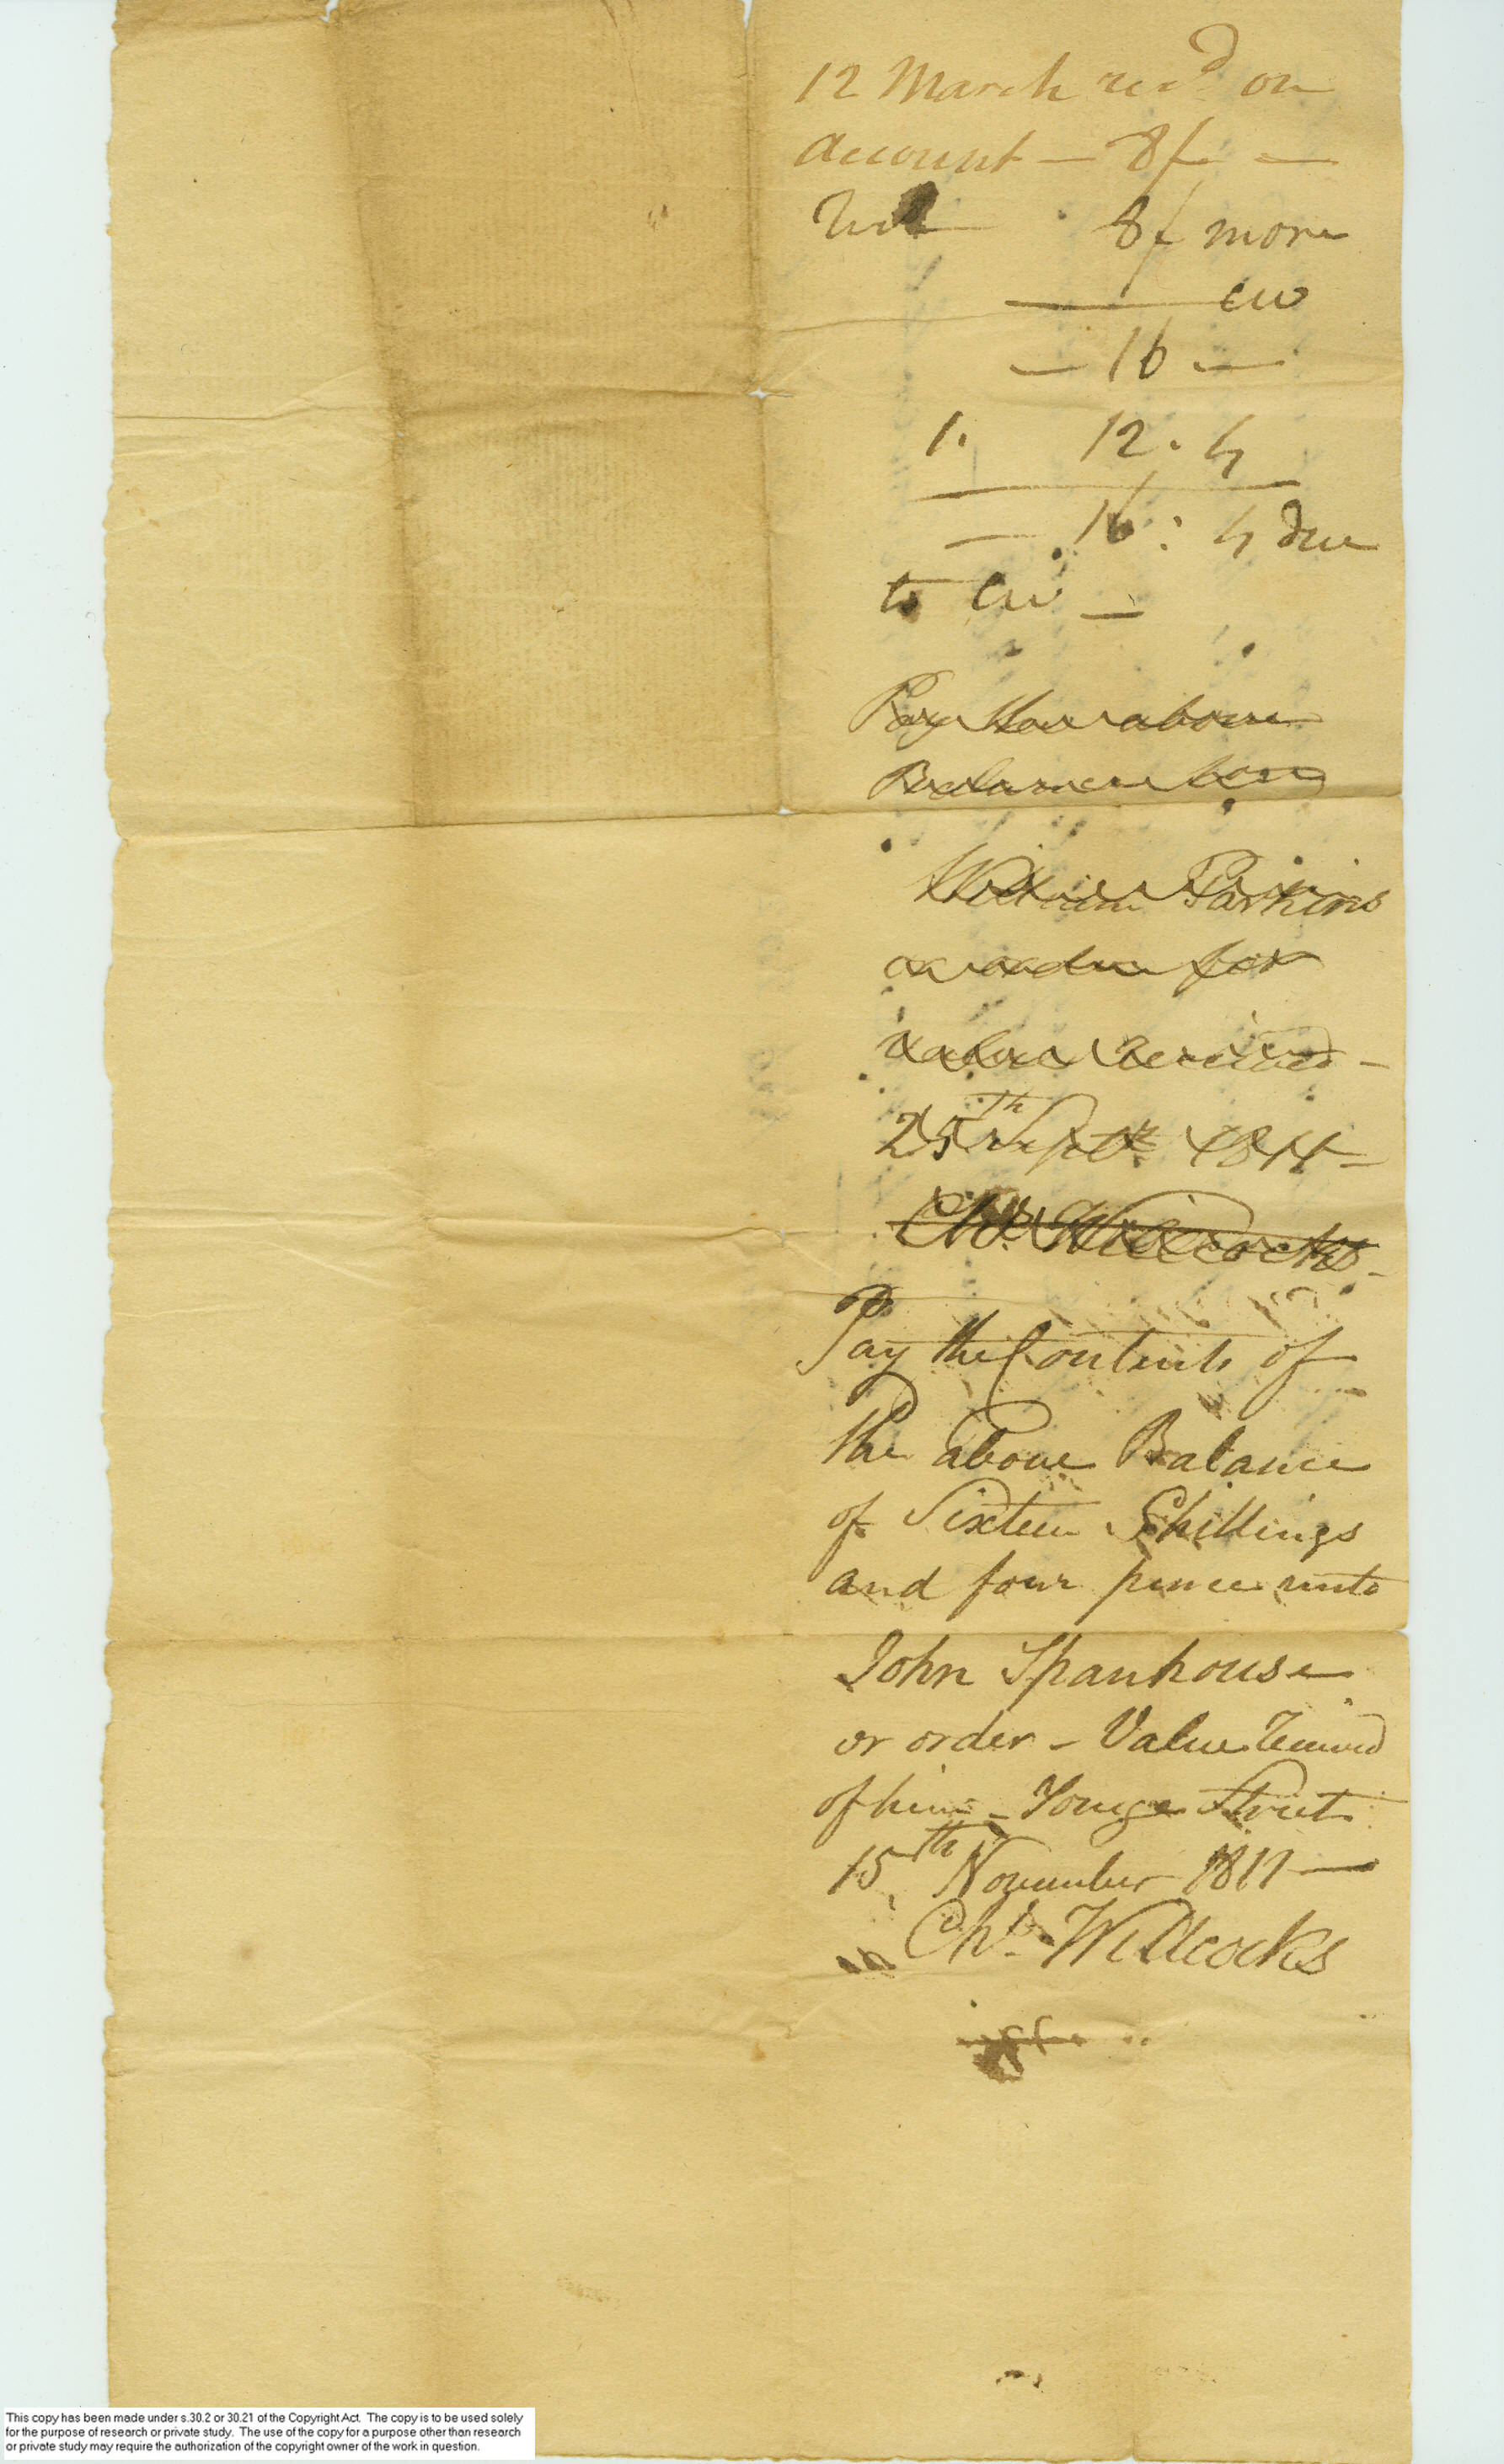 12 March recd on
account — 8/ —
8/ more
CW
— 16 —
1. 12. 4
— 16 : 4 due
to CW —
Pay the above
Balance to
William Parkins
or order for
value Received —
25th Septr 1811 —
Chs. Willcocks —
Pay the Contents of
the above Balance
of Sixteen Shillings
and four pence unto
John Spanhouse
or order – Value Received
of him – Yonge Street
15th November 1811 —
Chs. Willcocks
This copy has been made under s.30.2 or 30.21 of the Copyright Act. The copy is to be used solely
for the purpose of research or private study. The use of the copy for a purpose other than research
or private study may require the authorization of the copyright owner of the work in question.